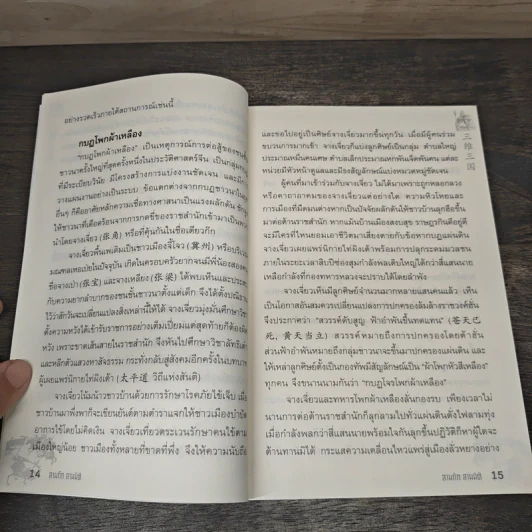 อย่างรวดเร็วภายใต้สถานการณ์เช่นนี้
กบฏโพกผ้าเหลือง
"กบฏโพกผ้าเหลือง" เป็นเหตุการณ์การต่อสู้ของชนชั้น
ชาวนาครั้งใหญ่ที่สุดครั้งหนึ่งในประวัติศาสตร์จีน เป็นกลุ่มกบฏ
ที่มีระเบียบวินัย มีโครงสร้างการแบ่งงานชัดเจน และมีการ
วางแผนงานอย่างเป็นระบบ ข้อแตกต่างจากกบฏชาวนาในยุค
อื่นๆ ก็คืออาศัยหลักความเชื่อทางศาสนาเป็นแรงผลักดัน ชักจูง
ให้ชาวนาที่เดือดร้อนจากการกดขี่ของราชสำนักเข้ามาเป็นพวก
นำโดยจางเจี่ยว (张角) หรือที่คุ้นกันในชื่อเตียวก๊ก
จางเจี่ยวพื้นเพเดิมเป็นชาวเมืองจี้โจว (冀州) หรือบริเวณ
มณฑลเหอเป่ยในปัจจุบัน เกิดในครอบครัวยากจนมีพี่น้องสองคน
ชื่อจางเป่า (张宝) และจางเหลียง (张梁) ได้พบเห็นและประสบ
กับความยากลำบากของชนชั้นชาวนาตั้งแต่เด็ก จึงได้ตั้งปณิธาน
ไว้ว่าสักวันจะเปลี่ยนแปลงสิ่งเหล่านี้ให้ได้ จางเจี่ยวมุ่งมั่นศึกษาวิชา
ตั้งความหวังได้เข้ารับราชการอย่างเต็มเปี่ยมแต่สุดท้ายก็ต้องผิด
หวัง เพราะขาดเส้นสายในราชสำนัก จึงหันไปศึกษาวิชาลัทธิเต๋า
และหลีกตัวแสวงหาสัจธรรม กระทั่งกลับสู่สังคมอีกครั้งในบทบาท
ผู้เผยแพร่นิกายไท่ผิงเต้า (太平道 วิถีแห่งสันติ)
จางเจี่ยวโน้มน้าวชาวบ้านด้วยการรักษาโรคภัยไข้เจ็บ เมื่อ
ชาวบ้านมาพึ่งพาก็จะเขียนยันต์ตามตำราแจกให้ชาวเมืองบำบัด
อาการไข้โดยไม่คิดเงิน จางเจี่ยวเที่ยวตระเวนรักษาคนไข้ตาม
เมืองใหญ่น้อย ชาวเมืองทั้งหลายที่ขาดที่พึ่ง จึงให้ความนับถือ
14 สามก๊ก สามมิติ
三维三国
และขอไปอยู่เป็นศิษย์จางเจี่ยวมากขึ้นทุกวัน เมื่อมีผู้คนร่วม
ขบวนการมากเข้า จางเจี่ยวก็แบ่งลูกศิษย์เป็นกลุ่ม ตำบลใหญ่
ประมาณหมื่นคนเศษ ตำบลเล็กประมาณหกพันเจ็ดพันคน แต่ละ
หน่วยมีหัวหน้าดูแลและมีธงสัญลักษณ์แบ่งหมวดหมู่ชัดเจน
ผู้คนที่มาเข้าร่วมกับจางเจี่ยว ไม่ได้มาเพราะถูกหลอกลวง
หรือคาถาอาคมของจางเจี่ยวแต่อย่างใด ความหิวโหยและ
การเมืองที่มืดมนต่างหากเป็นปัจจัยผลักดันให้ชาวบ้านลุกฮือขึ้น
มาต่อต้านราชสำนัก หากแม้นบ้านเมืองสงบสุข ราษฎรกินดีอยู่ดี
จะมีใครที่ไหนยอมเอาชีวิตมาเสี่ยงตายกับข้อหากบฏแผ่นดิน
จางเจี่ยวเผยแพร่นิกายไท่ผิงเต้าพร้อมการปลุกระดมมวลชน
ภายในระยะเวลาสิบปีช่องสุมกำลังพลเติบใหญ่ได้กว่าสี่แสนนาย
เหลือกำลังที่กองทหารหลวงจะปราบได้โดยลำพัง
จางเจี่ยวเห็นมีลูกศิษย์จำนวนมากหลายแสนคนแล้ว เห็น
เป็นโอกาสอันสมควรเปลี่ยนแปลงการปกครองล้มล้างราชวงศ์ฮั่น
จึงประกาศว่า "สวรรค์ดับสูญ ฟ้าอำพันขึ้นทดแทน" (苍天已
死, 黄天当立) สวรรค์หมายถึงการปกครองโดยต้าฮั่น
ส่วนฟ้าอำพันหมายถึงกลุ่มชาวนาจะขึ้นมาปกครองแผ่นดิน และ
ให้เหล่าลูกศิษย์ตั้งเป็นกองทัพมีสัญลักษณ์เป็น "ผ้าโพกหัวสีเหลือง"
ทุกคน จึงขนานนามกันว่า "กบฏโจรโพกผ้าเหลือง"
จางเจี่ยวและทหารโพกผ้าเหลืองลั่นกลองรบ เพียงเวลาไม่
นานการต่อต้านราชสำนักก็ลุกลามไปทั่วแผ่นดินดั่งไฟลามทุ่ง
เมื่อกำลังพลกว่าสี่แสนนายพร้อมใจกันลุกขึ้นปฏิวัติก็หาผู้ใดจะ
ต้านทานมิได้ กระแสความเคลื่อนไหวแพร่สู่เมืองลั่วหยางอย่าง
สามก๊ก สามมิติ 15